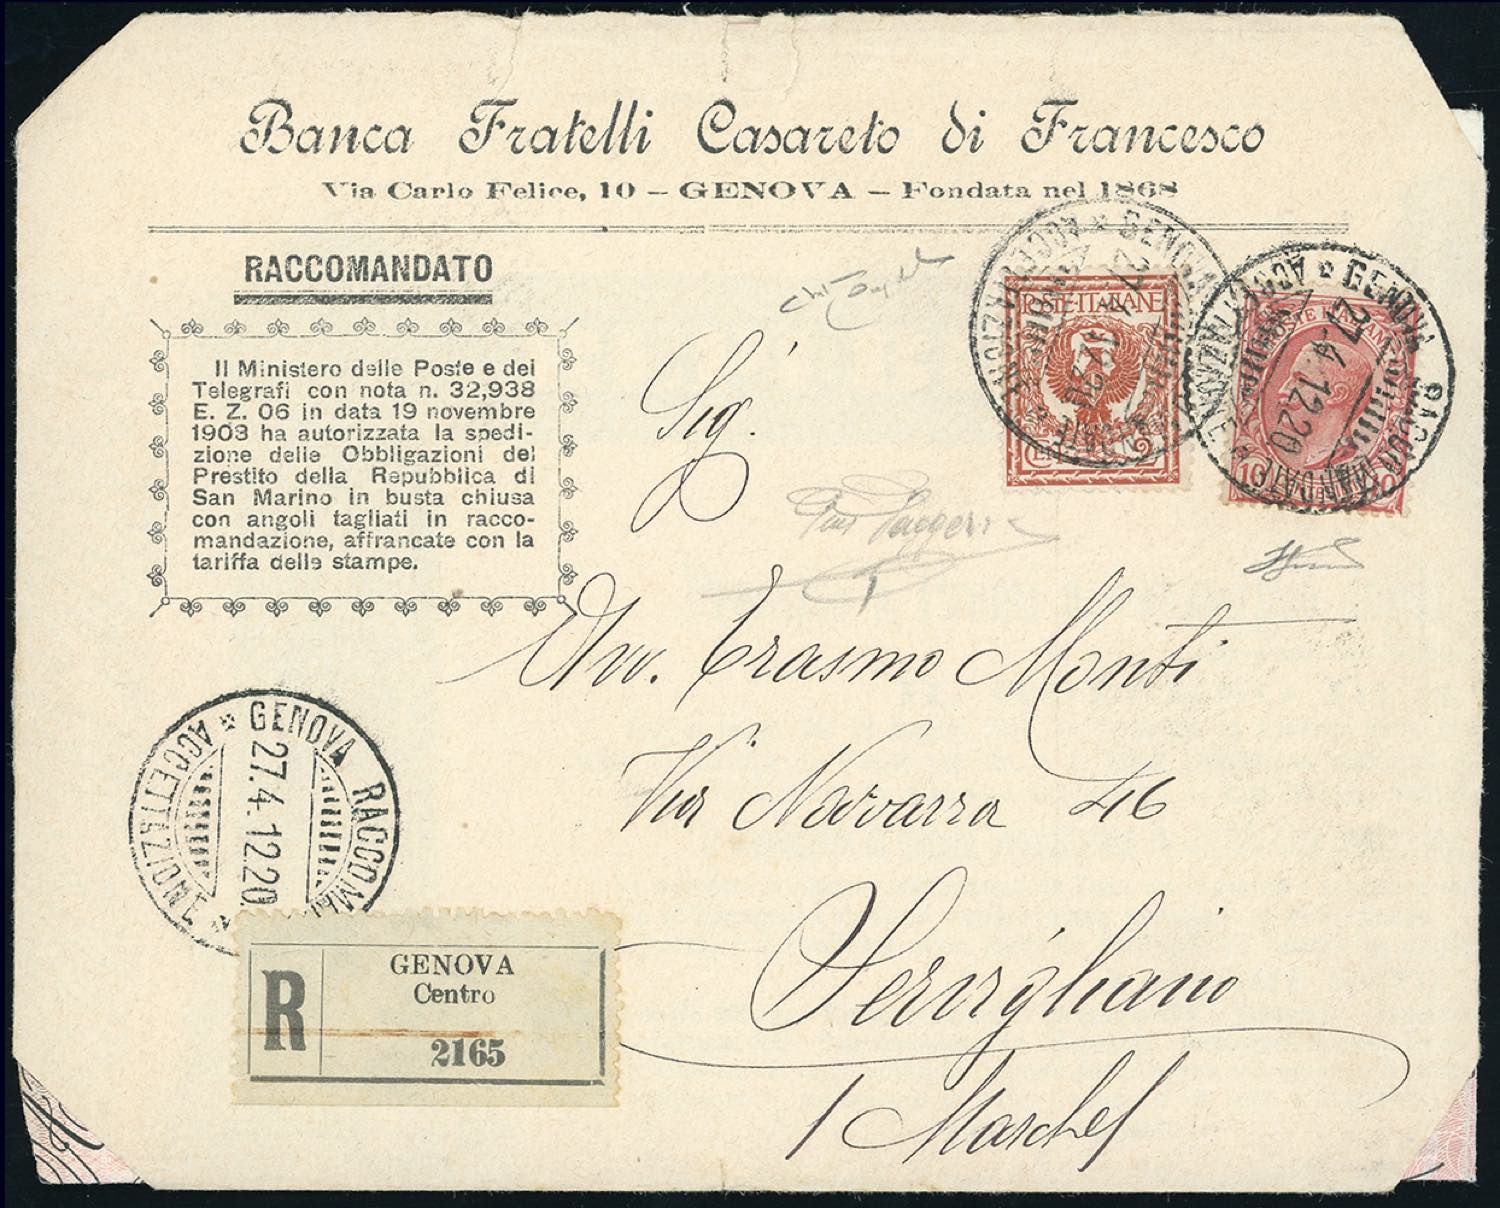 Banca Fratelli Casareto di Francesco
Via Carlo Felice, 10 – GENOVA – Fondata nel 1868
RACCOMANDATO
Il Ministero delle Poste e dei
Telegrafi con nota n. 32,938
E. Z. 06 in data 19 novembre
1903 ha autorizzata la spedi-
zione delle Obbligazioni del
Prestito della Repubblica di
San Marino in busta chiusa
con angoli tagliati in racco-
mandazione, affrancate con la
tariffa delle stampe.
POSTE·ITALIANE
2
GENOVA RACCOMANDATE
ACCETTAZIONE
27.4.12.20
POSTE ITALIANE
10
GENOVA RACCOMANDATE
ACCETTAZIONE
27.4.12.20
Sig.
Avv. Erasmo Monti
Via Navarra 46
Servigliano
(Marche)
GENOVA RACCOM
ACCETTAZIONE
27.4.12.20
R
GENOVA
Centro
2165